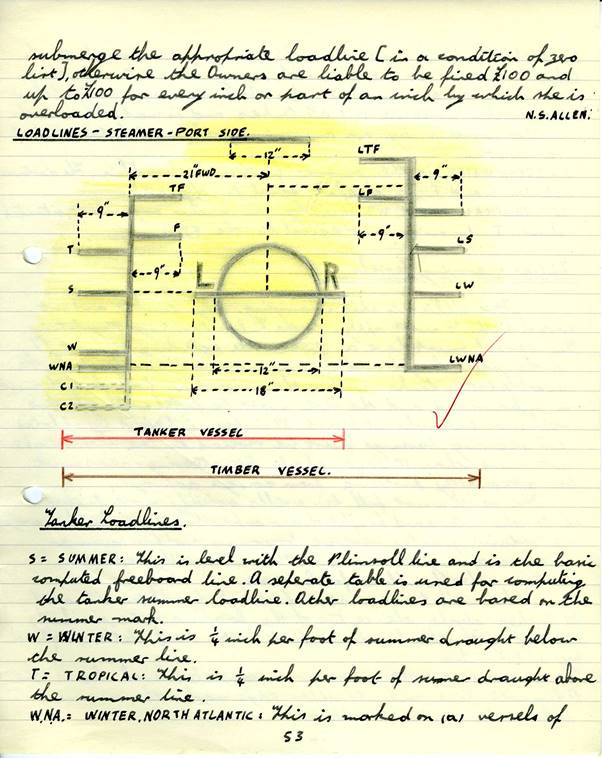 submerge the appropriate loadline [in a condition of zero
list], otherwise the Owners are liable to be fined £100 and
up to £100 for every inch or part of an inch by which she is
overloaded.
N.S.ALLEN.
LOADLINES - STEAMER - PORT SIDE.
12"
LTF
21" FWD
TF
LF
9"
9"
F
T
LS
9"
9"
L R
S
LW
W
WNA
12"
LWNA
C1
18"
C2
TANKER VESSEL
TIMBER VESSEL.
Tanker Loadlines.
S = SUMMER: This is level with the Plimsoll line and is the basic
computed freeboard line. A seperate table is used for computing
the tanker summer loadline. Other loadlines are based on the
summer mark.
W = WINTER: This is 1/4 inch per foot of summer draught below
the summer line.
T = TROPICAL: This is 1/4 inch per foot of summer draught above
the summer line.
W.N.A. = WINTER, NORTH ATLANTIC: This is marked on (a) vessels of
53